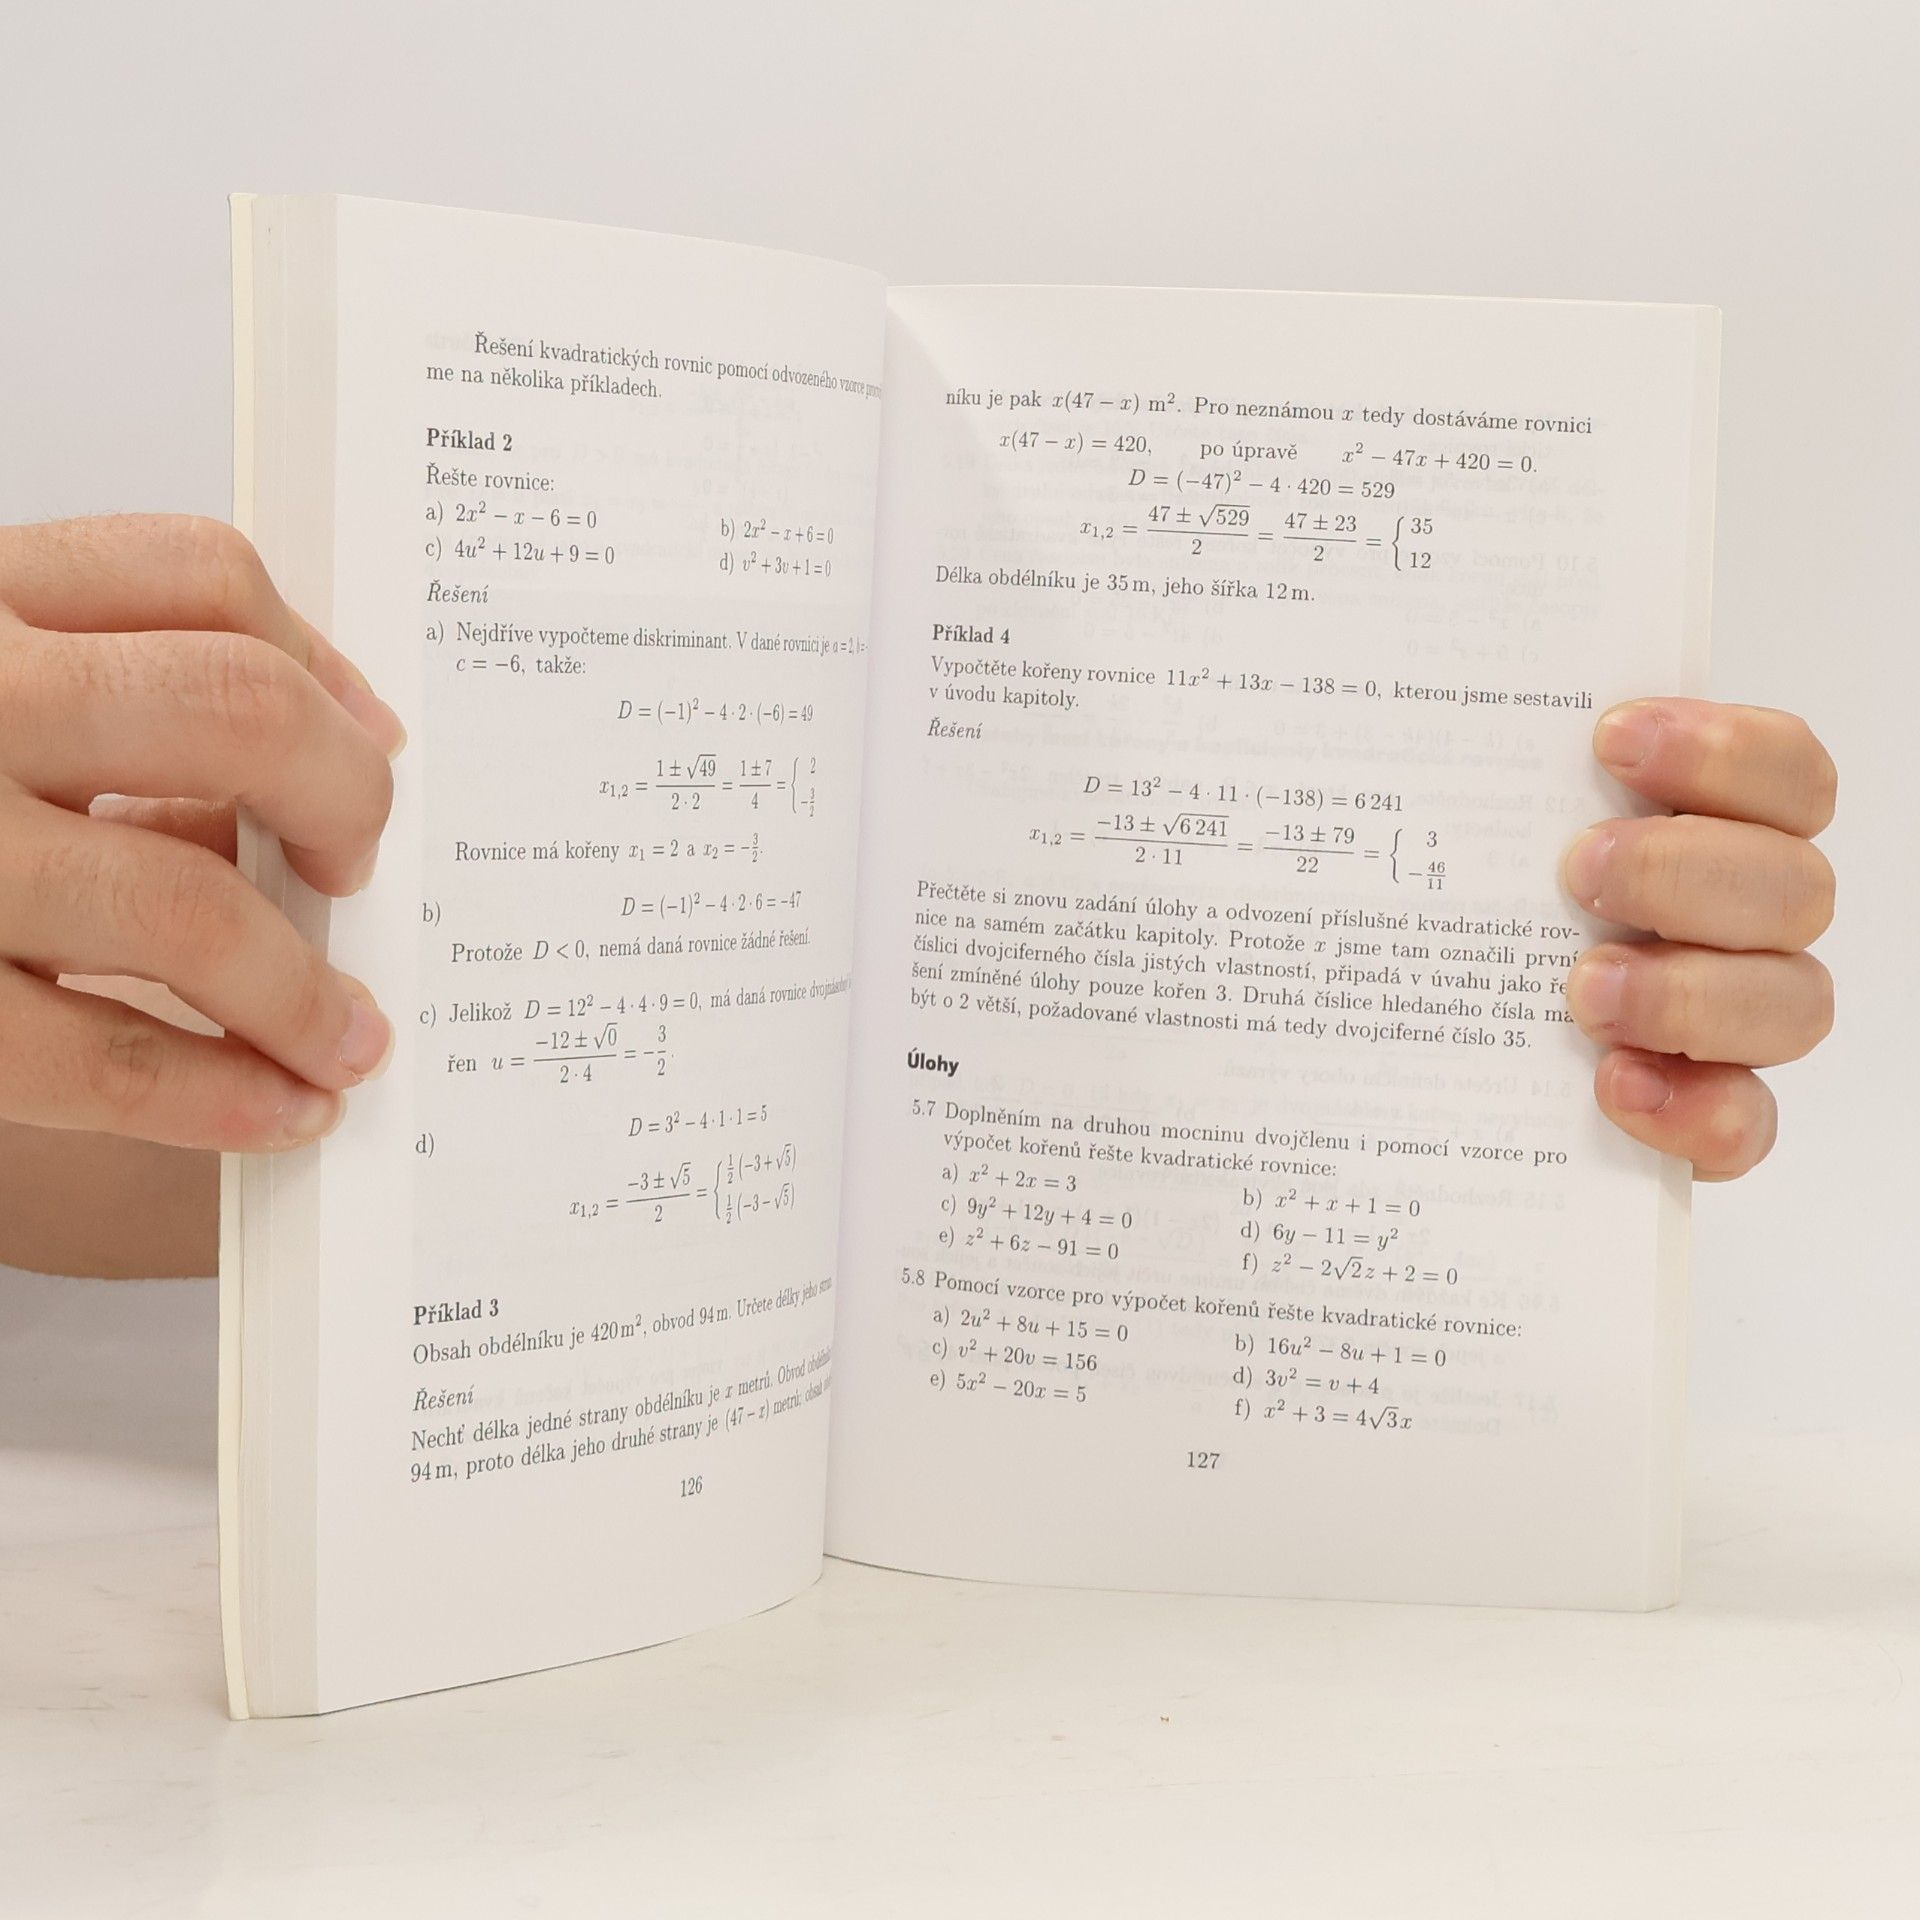 Řešení kvadratických rovnic pomocí odvozeného vzorce
me na několika příkladech.
Příklad 2
Řešte rovnice:
a) 2x² − x − 6 = 0
b) 2x² − x + 6 = 0
c) 4u² + 12u + 9 = 0
d) v² + 3v + 1 = 0
Řešení
a) Nejdříve vypočteme diskriminant. V dané rovnici je a = 2, b =
c = −6, takže:
D = (−1)² − 4 · 2 · (−6) = 49
x₁,₂ = (1 ± √49)/(2 · 2) = (1 ± 7)/4 = { 2 ; −3/2
Rovnice má kořeny x₁ = 2 a x₂ = −3/2.
b) D = (−1)² − 4 · 2 · 6 = −47
Protože D < 0, nemá daná rovnice žádné řešení.
c) Jelikož D = 12² − 4 · 4 · 9 = 0, má daná rovnice
řen u = (−12 ± √0)/(2 · 4) = −3/2.
d) D = 3² − 4 · 1 · 1 = 5
x₁,₂ = (−3 ± √5)/2 = { 1/2 (−3 + √5) ; 1/2 (−3 − √5)
Příklad 3
Obsah obdélníku je 420 m², obvod 94 m. Určete délky jeho
Řešení
Nechť délka jedné strany obdélníku je x metrů. Obvod
94 m, proto délka jeho druhé strany je (47 − x) metrů; obsah
126
níku je pak x(47 − x) m². Pro neznámou x tedy dostáváme rovnici
x(47 − x) = 420, po úpravě x² − 47x + 420 = 0.
D = (−47)² − 4 · 420 = 529
x₁,₂ = (47 ± √529)/2 = (47 ± 23)/2 = { 35 ; 12
Délka obdélníku je 35 m, jeho šířka 12 m.
Příklad 4
Vypočtěte kořeny rovnice 11x² + 13x − 138 = 0, kterou jsme sestavili
v úvodu kapitoly.
Řešení
D = 13² − 4 · 11 · (−138) = 6 241
x₁,₂ = (−13 ± √6 241)/(2 · 11) = (−13 ± 79)/22 = { 3 ; −46/11
Přečtěte si znovu zadání úlohy a odvození příslušné kvadratické rov-
nice na samém začátku kapitoly. Protože x jsme tam označili první
číslici dvojciferného čísla jistých vlastností, připadá v úvahu jako ře
šení zmíněné úlohy pouze kořen 3. Druhá číslice hledaného čísla má
být o 2 větší, požadované vlastnosti má tedy dvojciferné číslo 35.
Úlohy
5.7 Doplněním na druhou mocninu dvojčlenu i pomocí vzorce pro
výpočet kořenů řešte kvadratické rovnice:
a) x² + 2x = 3
b) x² + x + 1 = 0
c) 9y² + 12y + 4 = 0
d) 6y − 11 = y²
e) z² + 6z − 91 = 0
f) z² − 2√2z + 2 = 0
5.8 Pomocí vzorce pro výpočet kořenů řešte kvadratické rovnice:
a) 2u² + 8u + 15 = 0
b) 16u² − 8u + 1 = 0
c) v² + 20v = 156
d) 3v² = v + 4
e) 5x² − 20x = 5
f) x² + 3 = 4√3x
127